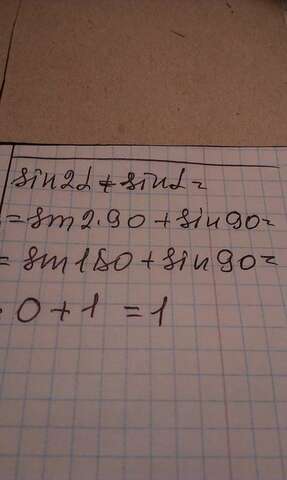 sin2α + sinα =
= sin2·90 + sin90 =
= sin180 + sin90 =
0 + 1 = 1